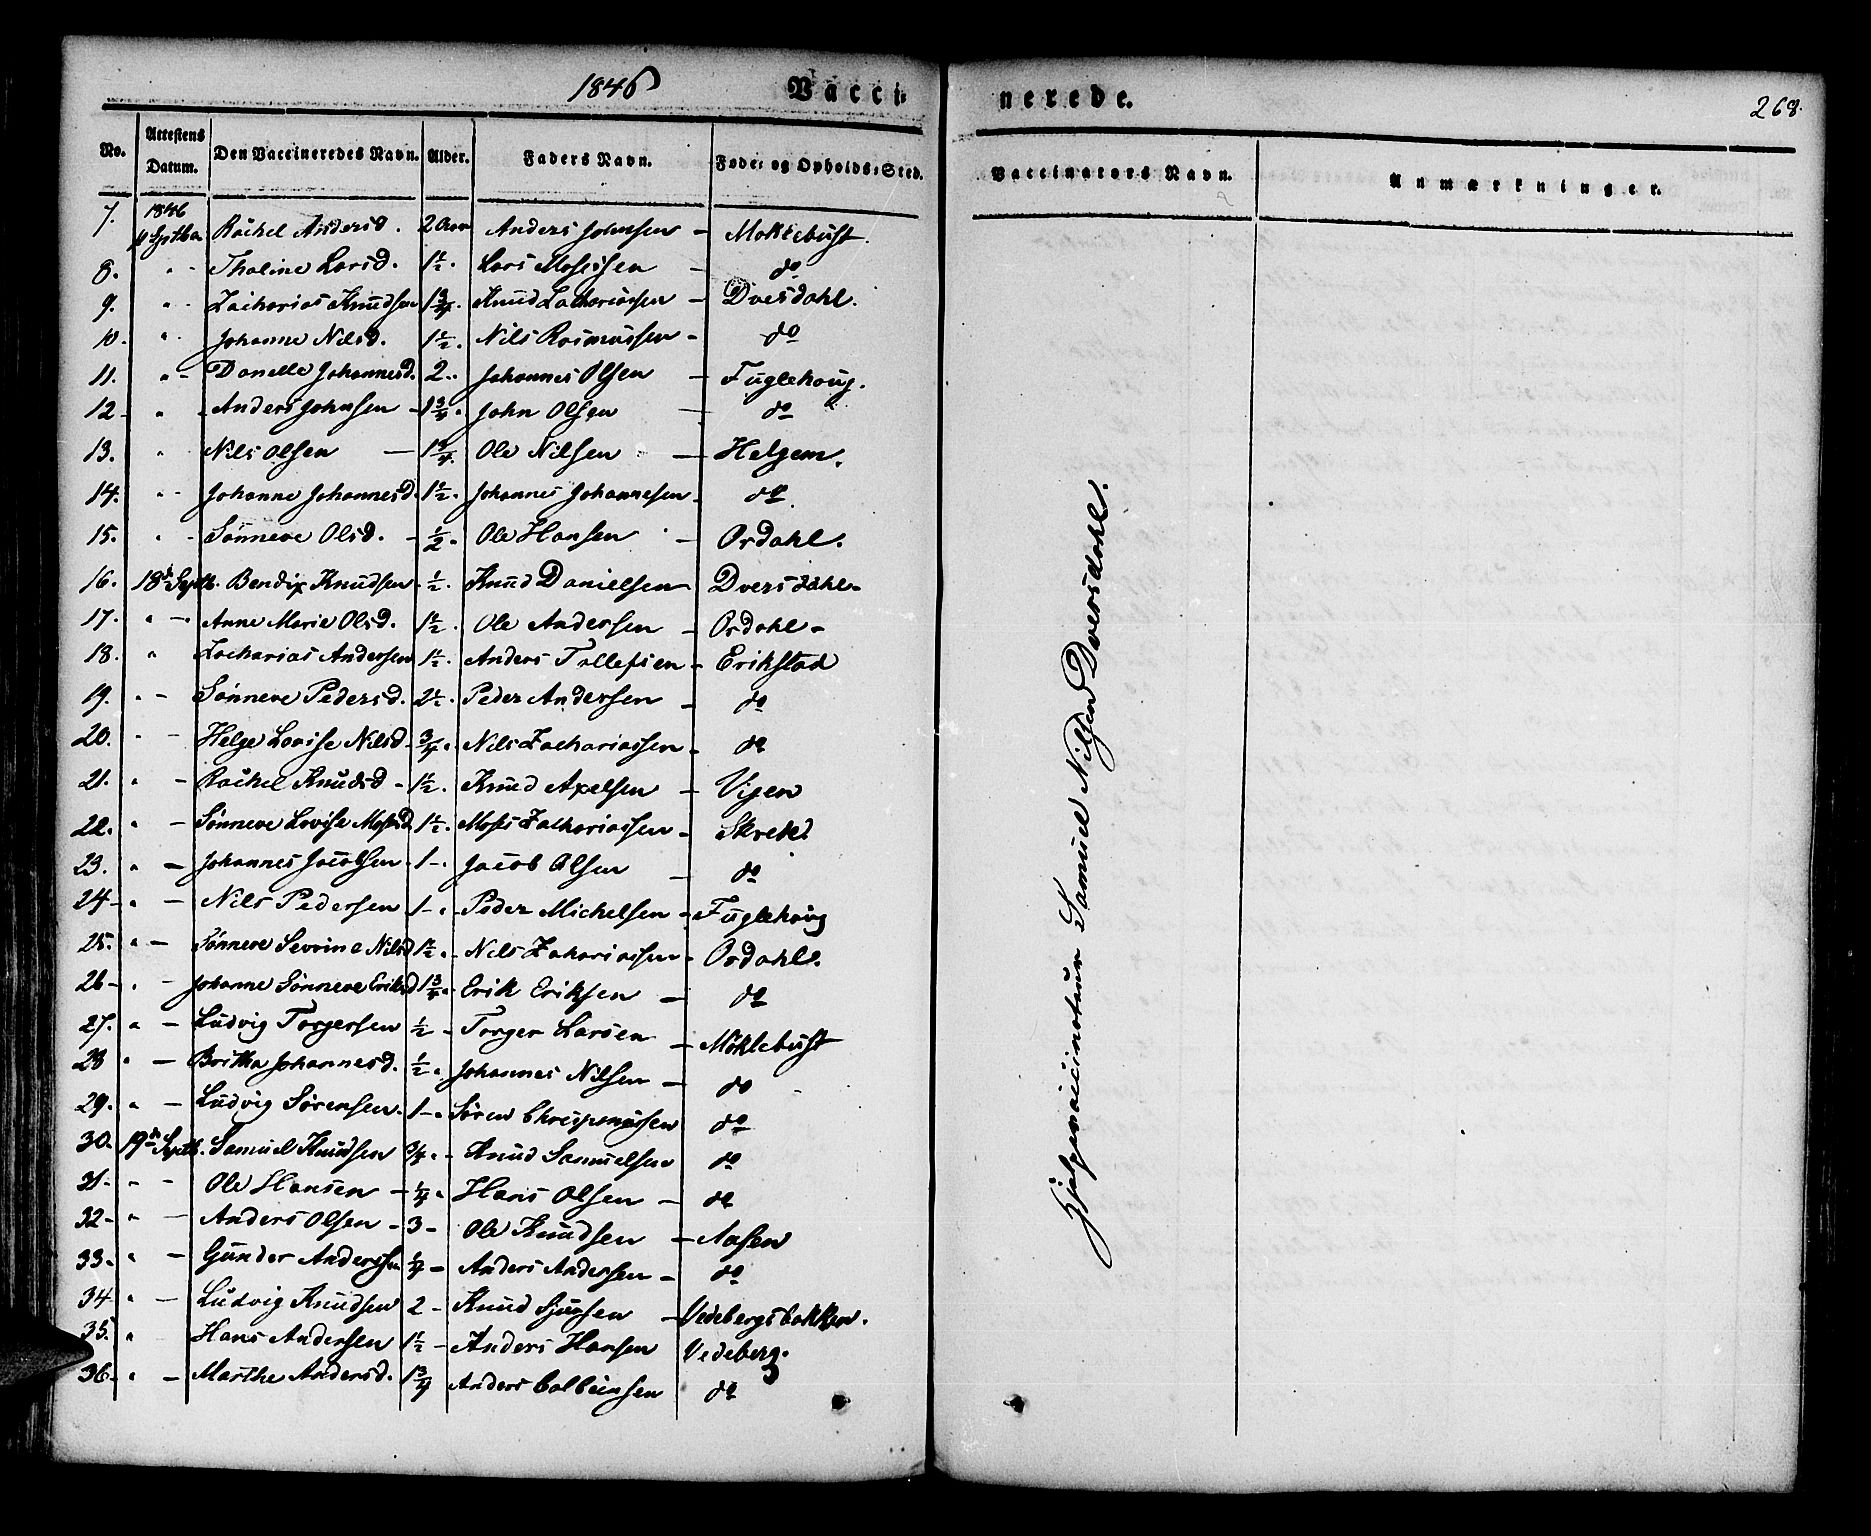 1846 Vacci- nerede. 268.
No. Attestens Datum. Den Vaccineredes Navn. Alder. Faders Navn. Føde- og Opholds-Sted. Vaccinators Navn. Anmærkninger.
7. 1846 Septbr. Rachel Andersd. 2 Aar Anders Johnsen - Moklebust.
8. " Thaline Larsd. 1 1/2. Lars Mosessen - do
9. " Zacharias Knudsen 1 3/4. Knud Zachariassen - Dversdahl.
10. " Johanne Nilsd. 1 1/2. Nils Rasmussen - do
11. " Danelle Johannesd. 2. Johannes Olsen - Fuglehoug.
12 " Anders Johnsen - 1 3/4. John Olsen - do
13. " Nils Olsen - 1 3/4. Ole Nilsen - Helgem.
14. " Johanne Johannesd. 1 1/2. Johannes Johannesen - do.
15. " Sønneve Olsd. - 1/2. Ole Hansen - Ordahl.
16. 18de Septb. Bendix Knudsen - 1/2. Knud Danielsen - Dversdahl
17. " Anne Marie Olsd. 1 1/2. Ole Andersen - Ordahl -
18. " Zacharias Andersen 1 1/2. Anders Tollefsen - Erikstad
19. " Sønneve Pedersd. 2 1/2. Peder Andersen - do
20. " Helge Lovise Nilsd. 3/4. Nils Zachariassen - do
21. " Rachel Knudsd - 1 1/2. Knud Axelsen - Vigen
22. " Sønneve Lovise Mosesd. 1 1/2. Moses Zachariassen - Skrek
23. " Johannes Jacobsen. 1 -. Jacob Olsen - do
24 - " Nils Pedersen 1 -. Peder Michelsen - Fuglehoug
25. " Sønneve Sevrine Nilsd 1 1/2. Nils Zachariassen - Ordahl.
26 - " Johanne Sønneve Eriksd 1 3/4. Erik Eriksen - do
27. " Ludvig Torgersen 1/2 - Torger Larsen - Möklebust
28 " Britha Johannesd. 1/2. Johannes Nilsen - do
29. " Ludvig Sørensen. 1 -. Søren - do
30. 19de Septb. Samuel Knudsen 3/4. Knud Samuelsen do
31. " Ole Hansen - 1/4. Hans Olsen - do
32 - " Anders Olsen - 3 - Ole Knudsen - Aasen
33. " Gunder Anderssen 1/4 - Anders Andersen - do
34 " Ludvig Knudsen 2 - Knud Sjursen - Vedebergsbakken.
35. " Hans Andersen 1 1/2 - Anders Hansen Vedeberg.
36 - " Marthe Andersd. 1 3/4 Anders Colbeinsen do
Hjælpevaccinateur Samuel Nilsen Dversdahl.